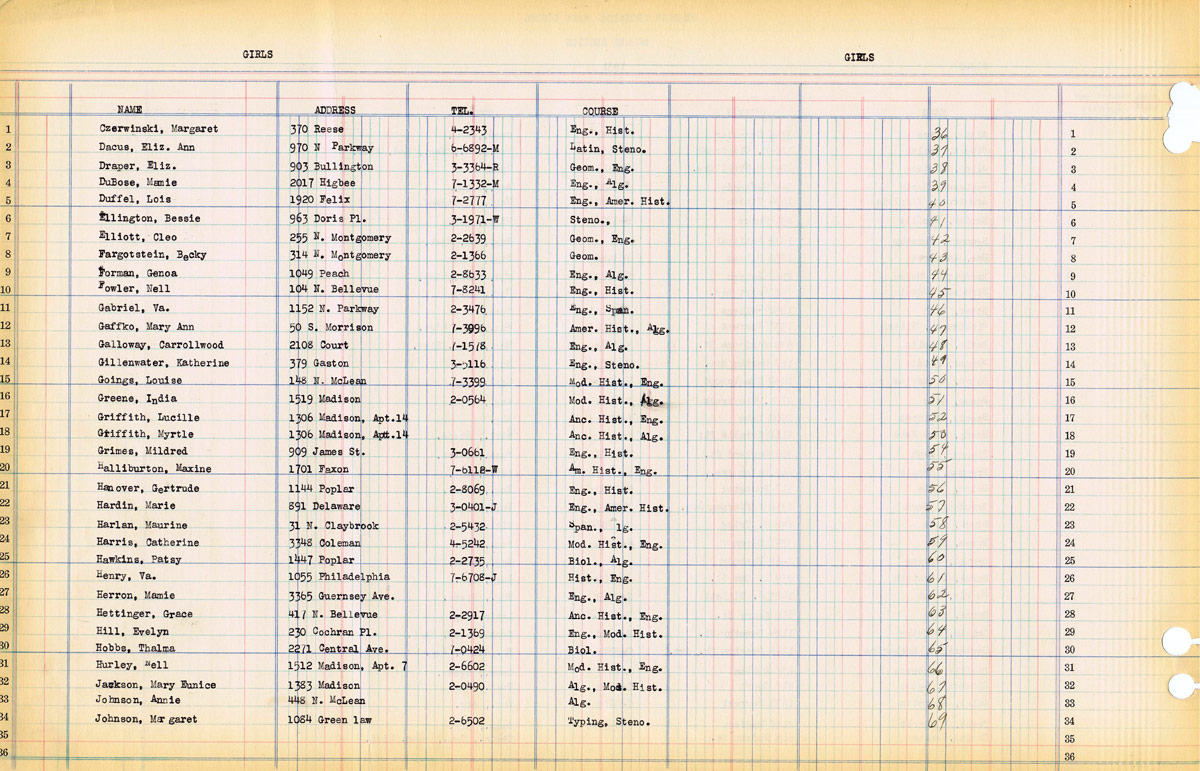 GIRLS GIRLS
NAME ADDRESS TEL. COURSE
1 Czerwinski, Margaret 370 Reese 4-2343 Eng., Hist. 36 1
2 Dacus, Eliz. Ann 970 N Parkway 6-6892-M Latin, Steno. 37 2
3 Draper, Eliz. 903 Bullington 3-3364-R Geom., Eng. 38 3
4 DuBose, Mamie 2017 Higbee 7-1332-M Eng., Alg. 39 4
5 Duffel, Lois 1920 Felix 7-2777 Eng., Amer. Hist. 40 5
6 Ellington, Bessie 963 Doris Pl. 3-1971-W Steno., 41 6
7 Elliott, Cleo 255 N. Montgomery 2-2639 Geom., Eng. 42 7
8 Fargotstein, Becky 314 N. Montgomery 2-1366 Geom. 43 8
9 Forman, Genoa 1049 Peach 2-8633 Eng., Alg. 44 9
10 Fowler, Nell 104 N. Bellevue 7-8241 Eng., Hist. 45 10
11 Gabriel, Va. 1152 N. Parkway 2-3476 Eng., Span. 46 11
12 Gaffko, Mary Ann 50 S. Morrison 7-3996 Amer. Hist., Alg. 47 12
13 Galloway, Carrollwood 2108 Court 7-1578 Eng., Alg. 48 13
14 Gillenwater, Katherine 379 Gaston Eng., Steno. 49 14
15 Goings, Louise 148 N. McLean 7-3399 Mod. Hist., Eng. 50 15
16 Greene, India 1519 Madison 2-0564 Mod. Hist., Alg. 51 16
17 Griffith, Lucille 1306 Madison, Apt.14 Anc. Hist., Eng. 52 17
18 Griffith, Myrtle 1306 Madison, Apt.14 Anc. Hist., Alg. 53 18
19 Grimes, Mildred 909 James St. 3-0661 Eng., Hist. 54 19
20 Halliburton, Maxine 1701 Faxon 7-6118-W Am. Hist., Eng. 55 20
21 Hanover, Gertrude 1144 Poplar 2-8069 Eng., Hist. 56 21
22 Hardin, Marie 891 Delaware 3-0401-J Eng., Amer. Hist. 57 22
23 Harlan, Maurine 31 N. Claybrook 2-5432 Span., lg. 58 23
24 Harris, Catherine 3348 Coleman 4-5242 Mod. Hist., Eng. 59 24
25 Hawkins, Patsy 1447 Poplar 2-2735 Biol., Alg. 60 25
26 Henry, Va. 1055 Philadelphia 7-6708-J Hist., Eng. 61 26
27 Herron, Mamie 3365 Guernsey Ave. Eng., Alg. 62 27
28 Hettinger, Grace 417 N. Bellevue 2-2917 Anc. Hist., Eng. 63 28
29 Hill, Evelyn 230 Cochran Pl. 2-1369 Eng., Mod. Hist. 64 29
30 Hobbs, Thalma 2271 Central Ave. 7-0424 Biol. 65 30
31 Hurley, Nell 1512 Madison, Apt. 7 2-6602 Mod. Hist., Eng. 66 31
32 Jackson, Mary Eunice 1383 Madison 2-0490 Alg., Mod. Hist. 67 32
33 Johnson, Annie 448 N. McLean Alg. 68 33
34 Johnson, Margaret 1084 Green law 2-6502 Typing, Steno. 69 34
35 35
36 36